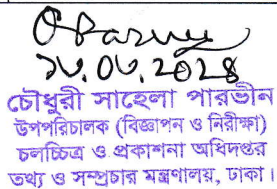 ১৬.০৬.২০২৪
চৌধুরী সাহেলা পারভীন
উপপরিচালক (বিজ্ঞাপন ও নিরীক্ষা)
চলচ্চিত্র ও প্রকাশনা অধিদপ্তর
তথ্য ও সম্প্রচার মন্ত্রণালয়, ঢাকা।